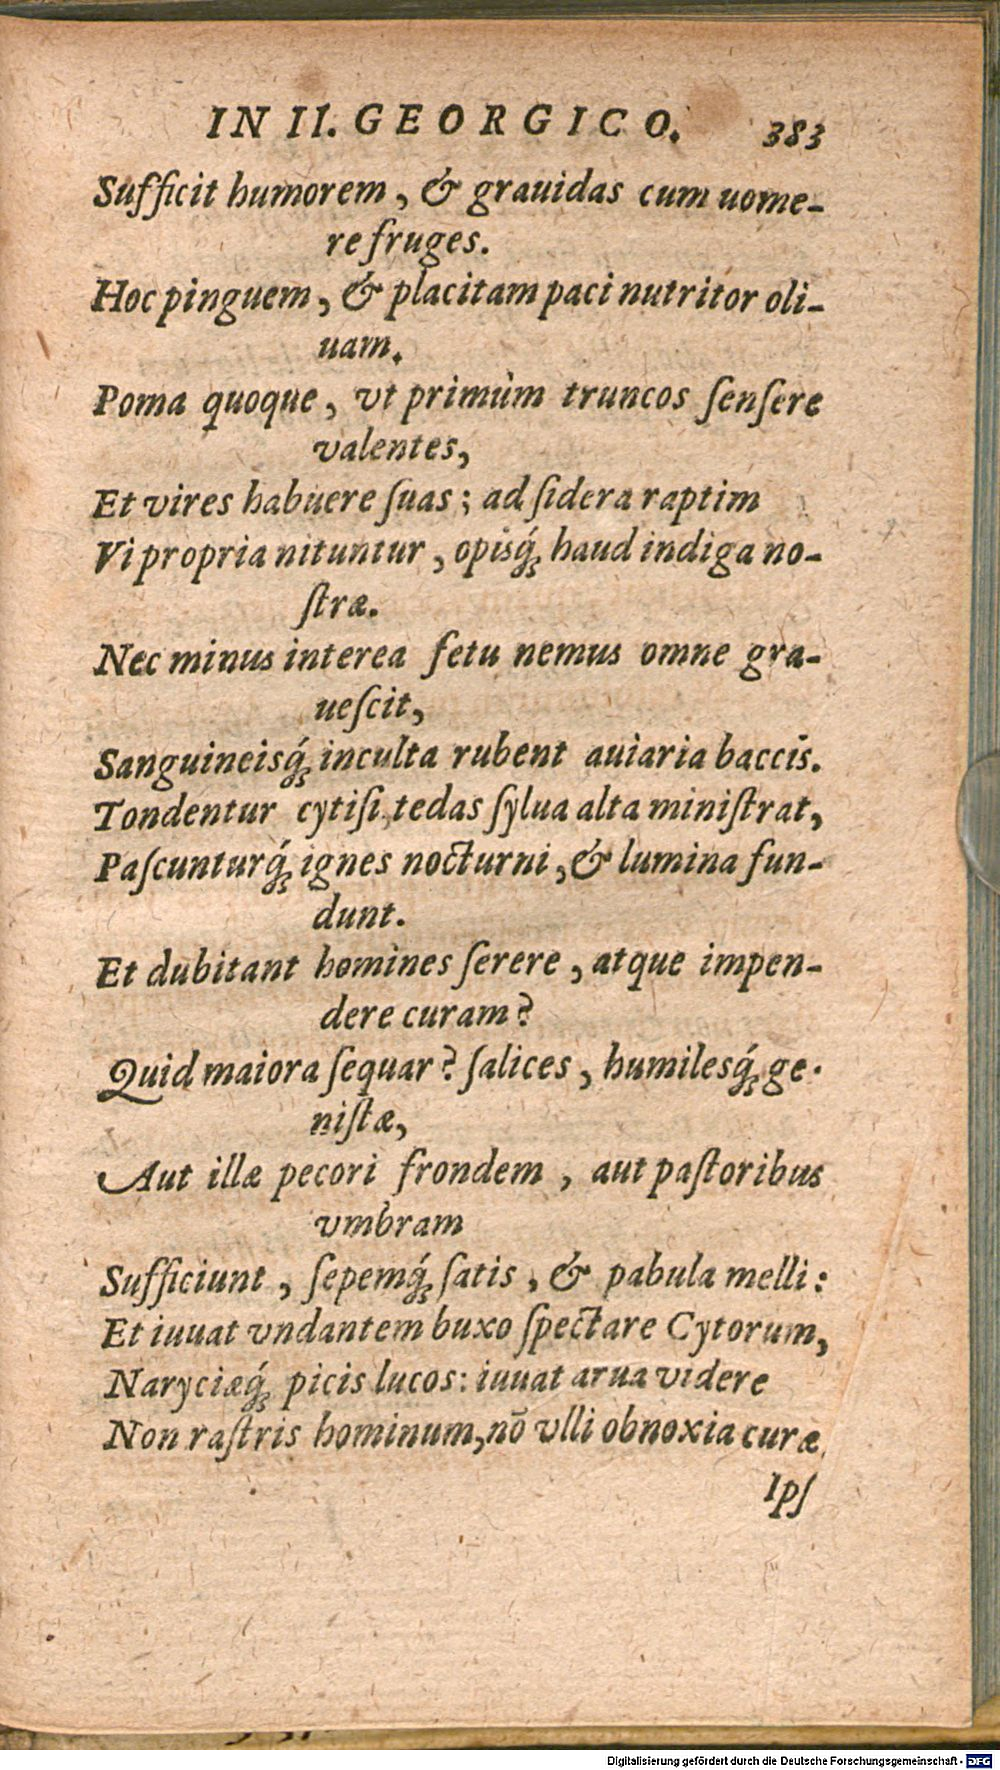 IN II. GEORGICO. 383
Sufficit humorem, & grauidas cum uome-
re fruges.
Hoc pinguem, & placitam paci nutritor oli-
uam.
Poma quoque, vt primùm truncos ſenſere
valentes,
Et vires habuere ſuas; ad ſidera raptim
Vi propria nituntur, opisq́; haud indiga no-
ſtræ.
Nec minus interea fetu nemus omne gra-
ueſcit,
Sanguineisq́; inculta rubent auiaria baccis.
Tondentur cytiſi, tedas ſylua alta miniſtrat,
Paſcunturq́; ignes nocturni, & lumina fun-
dunt.
Et dubitant homines ſerere, atque impen-
dere curam?
Quid maiora ſequar? ſalices, humilesq́; ge-
niſtæ,
Aut illæ pecori frondem, aut paſtoribus
vmbram
Sufficiunt, ſepemq́; ſatis, & pabula melli:
Et iuuat vndantem buxo ſpectare Cytorum,
Naryciæq́; picis lucos: iuuat arua videre
Non raſtris hominum, nō vlli obnoxia curæ
Ipſ
Digitalisierung gefördert durch die Deutsche Forschungsgemeinschaft - DFG